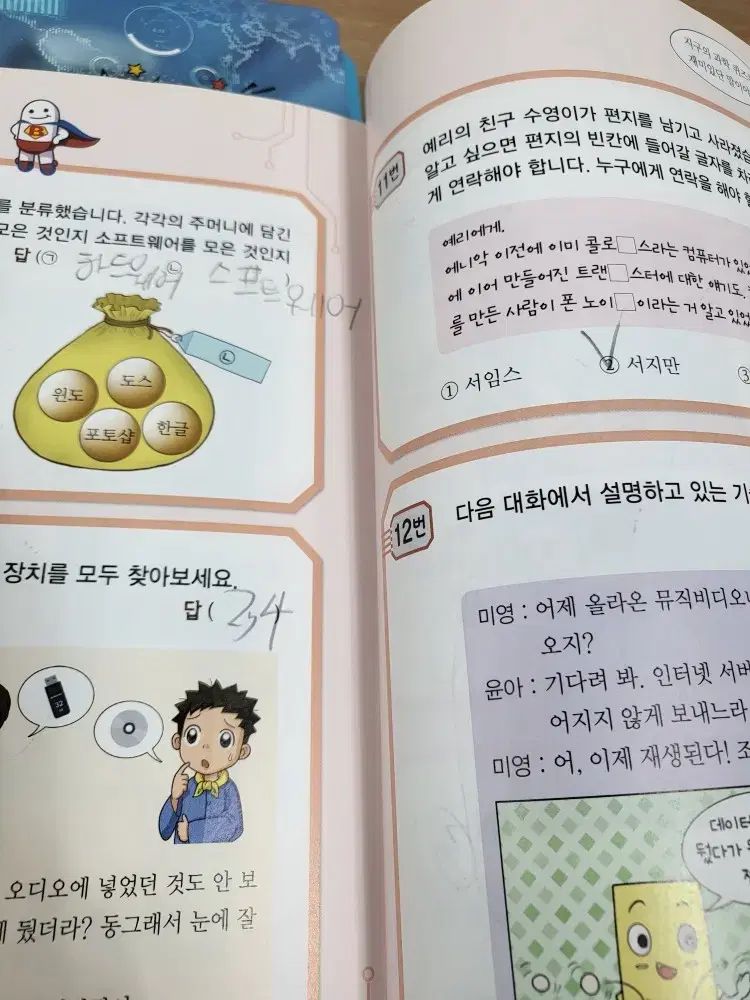 를 분류했습니다. 각각의 주머니에 담긴
모은 것인지 소프트웨어를 모은 것인지
답(㉠ 하드웨어 ㉡ 소프트웨어
㉡
윈도
도스
포토샵
한글
장치를 모두 찾아보세요.
답( 2,3,4
32
오디오에 넣었던 것도 안 보
뒀더라? 동그래서 눈에 잘
지구의 과학 퀴즈
재미있단 말이야
11번
예리의 친구 수영이가 편지를 남기고 사라졌습
알고 싶으면 편지의 빈칸에 들어갈 글자를 차
게 연락해야 합니다. 누구에게 연락을 해야 할
예리에게.
에니악 이전에 이미 콜로□스라는 컴퓨터가 있었
에 이어 만들어진 트랜□스터에 대한 얘기도.
를 만든 사람이 폰 노이□이라는 거 알고 있었
① 서임스
② 서지만
③
12번
다음 대화에서 설명하고 있는 기
미영 : 어제 올라온 뮤직비디오
오지?
윤아 : 기다려 봐. 인터넷 서버
어지지 않게 보내느라
미영 : 어, 이제 재생된다!
데이터
뒀다가